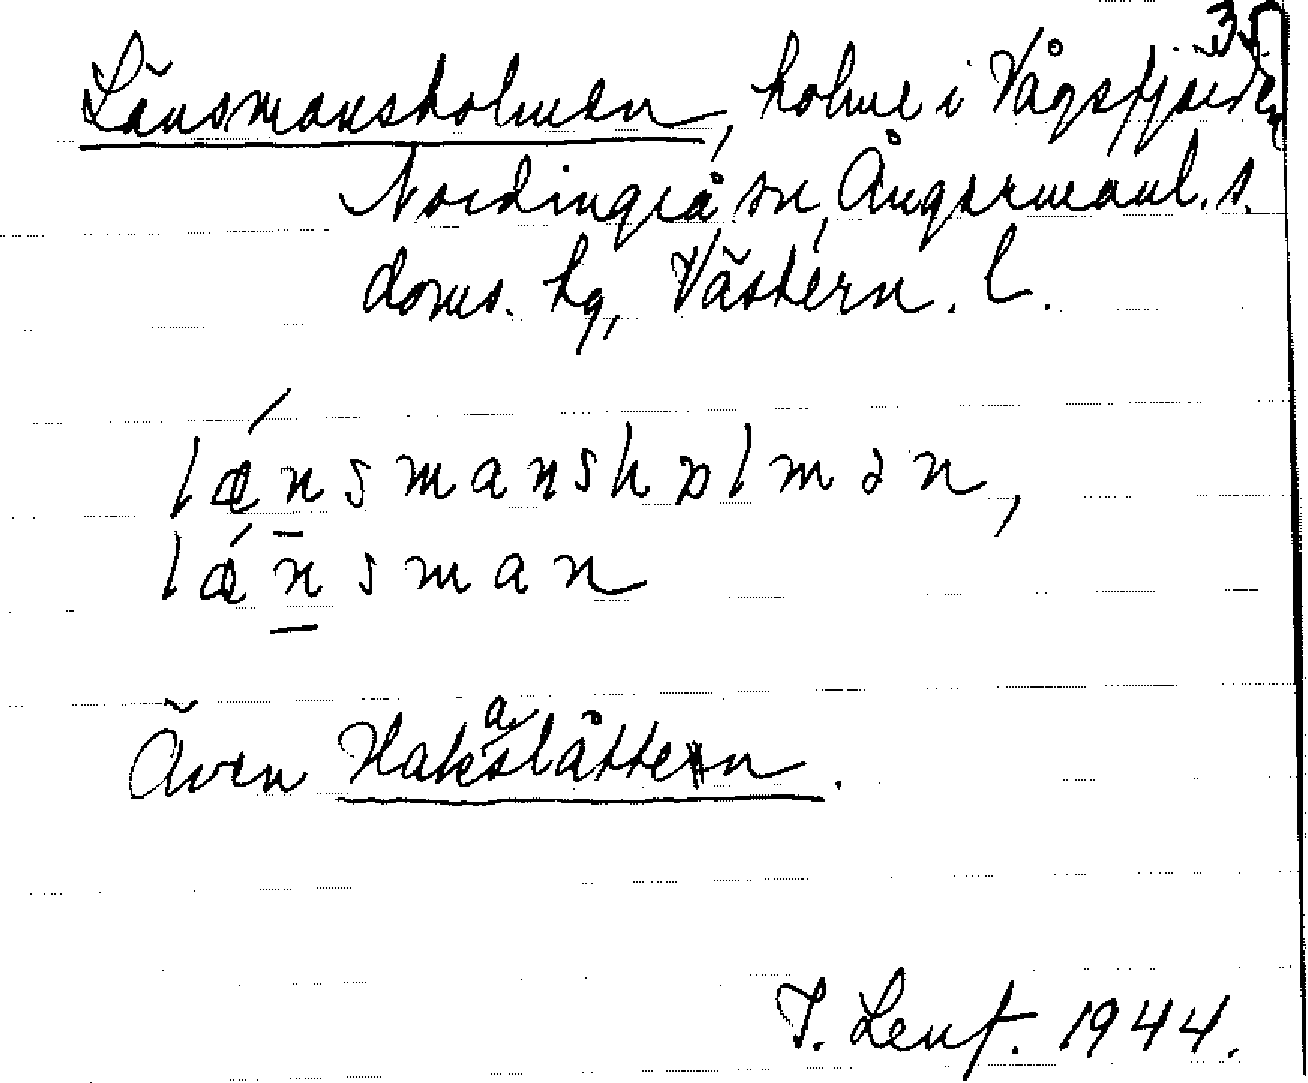 35
Länsmansholmen, holme i Vågsfjärden
Nordingrå sn, Ångermanl. s.
doms. hg, Västern. l.
lǽnsmanshɒlmən,
lǽnsman
Även Hakaslåtten.
T. Lenf. 1944.